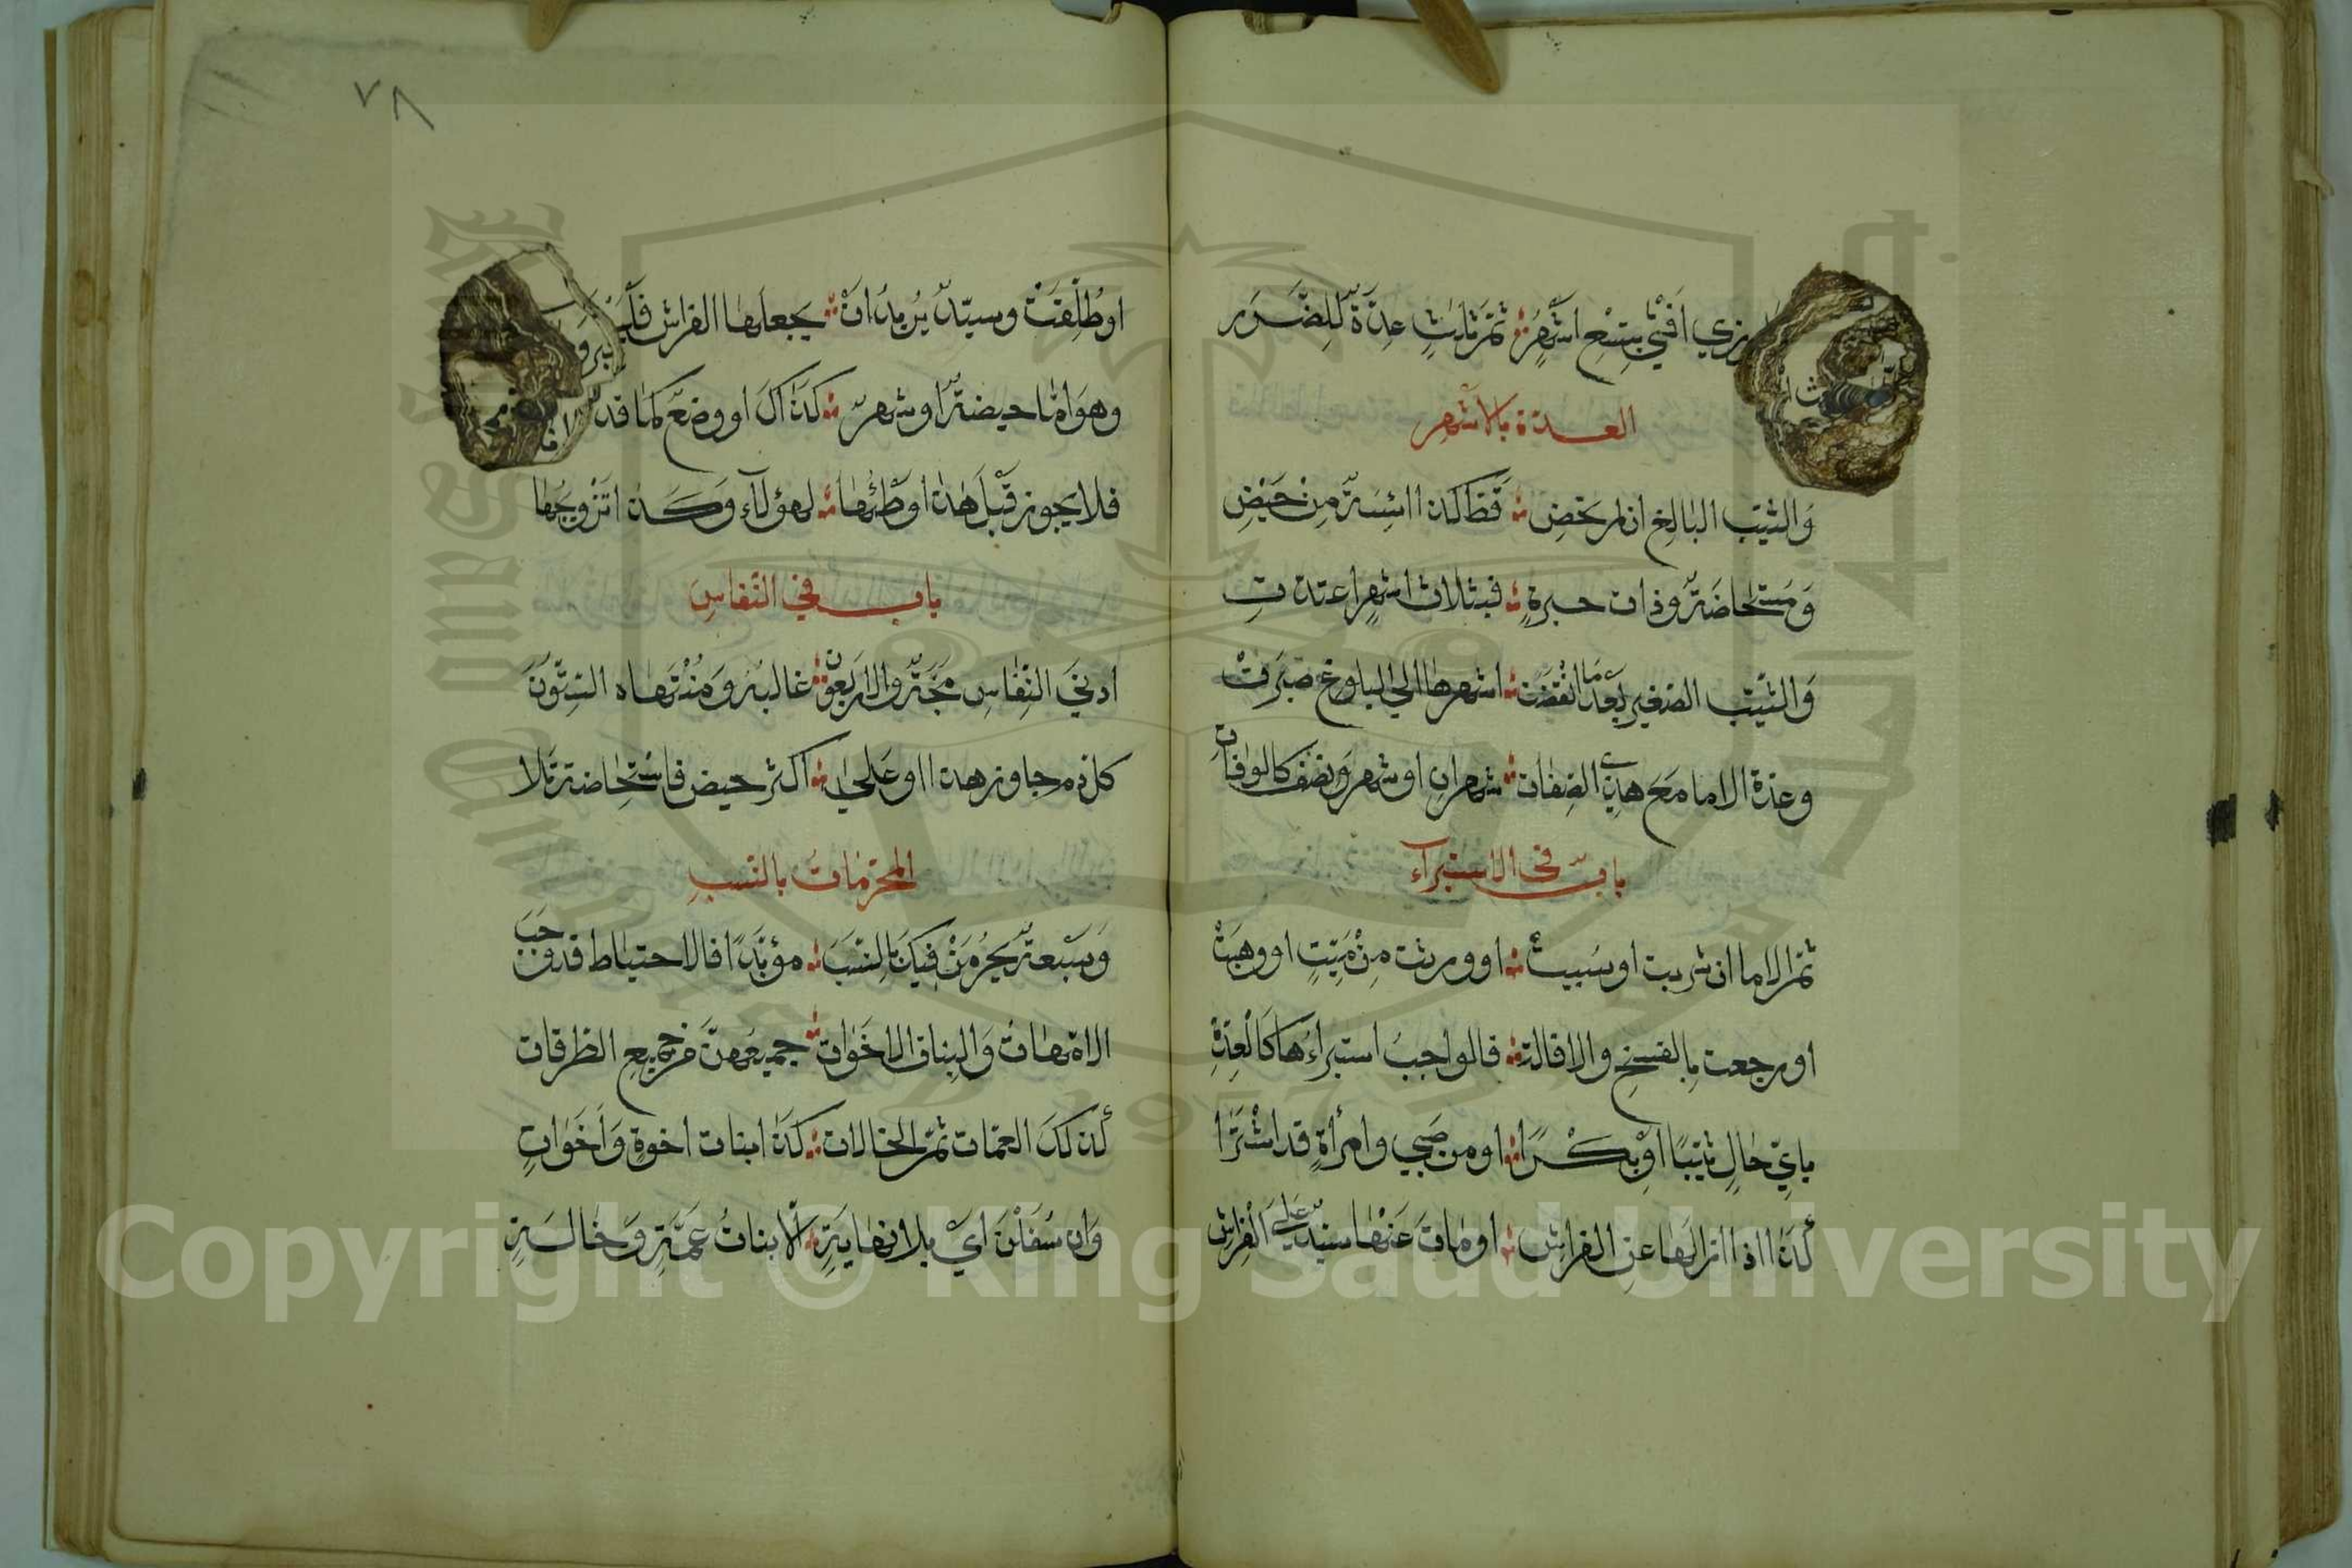 زي افتي بتسع اشهر ثم ثلث عدة للضرر
العدة بالاشهر
والثيب البالغ ان لم تحض قط كذا ائسة من حيض
ومستحاضة وذات حيرة فبثلاث اشهر اعتدت
والثيب الصغير بعد ما انقضت اشهرها الي البلوغ صبرت
وعدة الاما مع هذي الصفات شهران او شهر ونصف كالوفات
باب في الاستبراء
ثم الاما ان شريت او سبيت او ورثت من ميت او وهبت
او رجعت بالفسخ والاقالة فالواجب استبراءها كالعدة
باي حال ثيبا او بكرا او من صبي وامرأة قد اشترا
كذا اذا ازالها عن الفراش او مات عنها سيد علي الفراش
٧٨
او طلقت وسيد يريد ان يجعلها الفراش
وهو اما حيضة او شهر كذاك او وضع كما قد
فلا يجوز قبل هذا وطئها لهؤلاء وكذا تزويجها
باب في النفاس
ادني النفاس مجة والاربعون غالبه ومنتهاه الستون
كل دم جاوز هذا او علي اكثر حيض فاستحاضة تلا
المحرمات بالنسب
وسبعة يحرمن فيك بالنسب مؤبدا فالاحتياط قد وجب
الامهات والبنات الاخوات جميعهن من جميع الطرقات
كذلك العمات ثم الخالات كذا بنات اخوة واخوات
وان سفلن اي بلا نهاية الا بنات عمة وخالة
Copyright © King Saud University